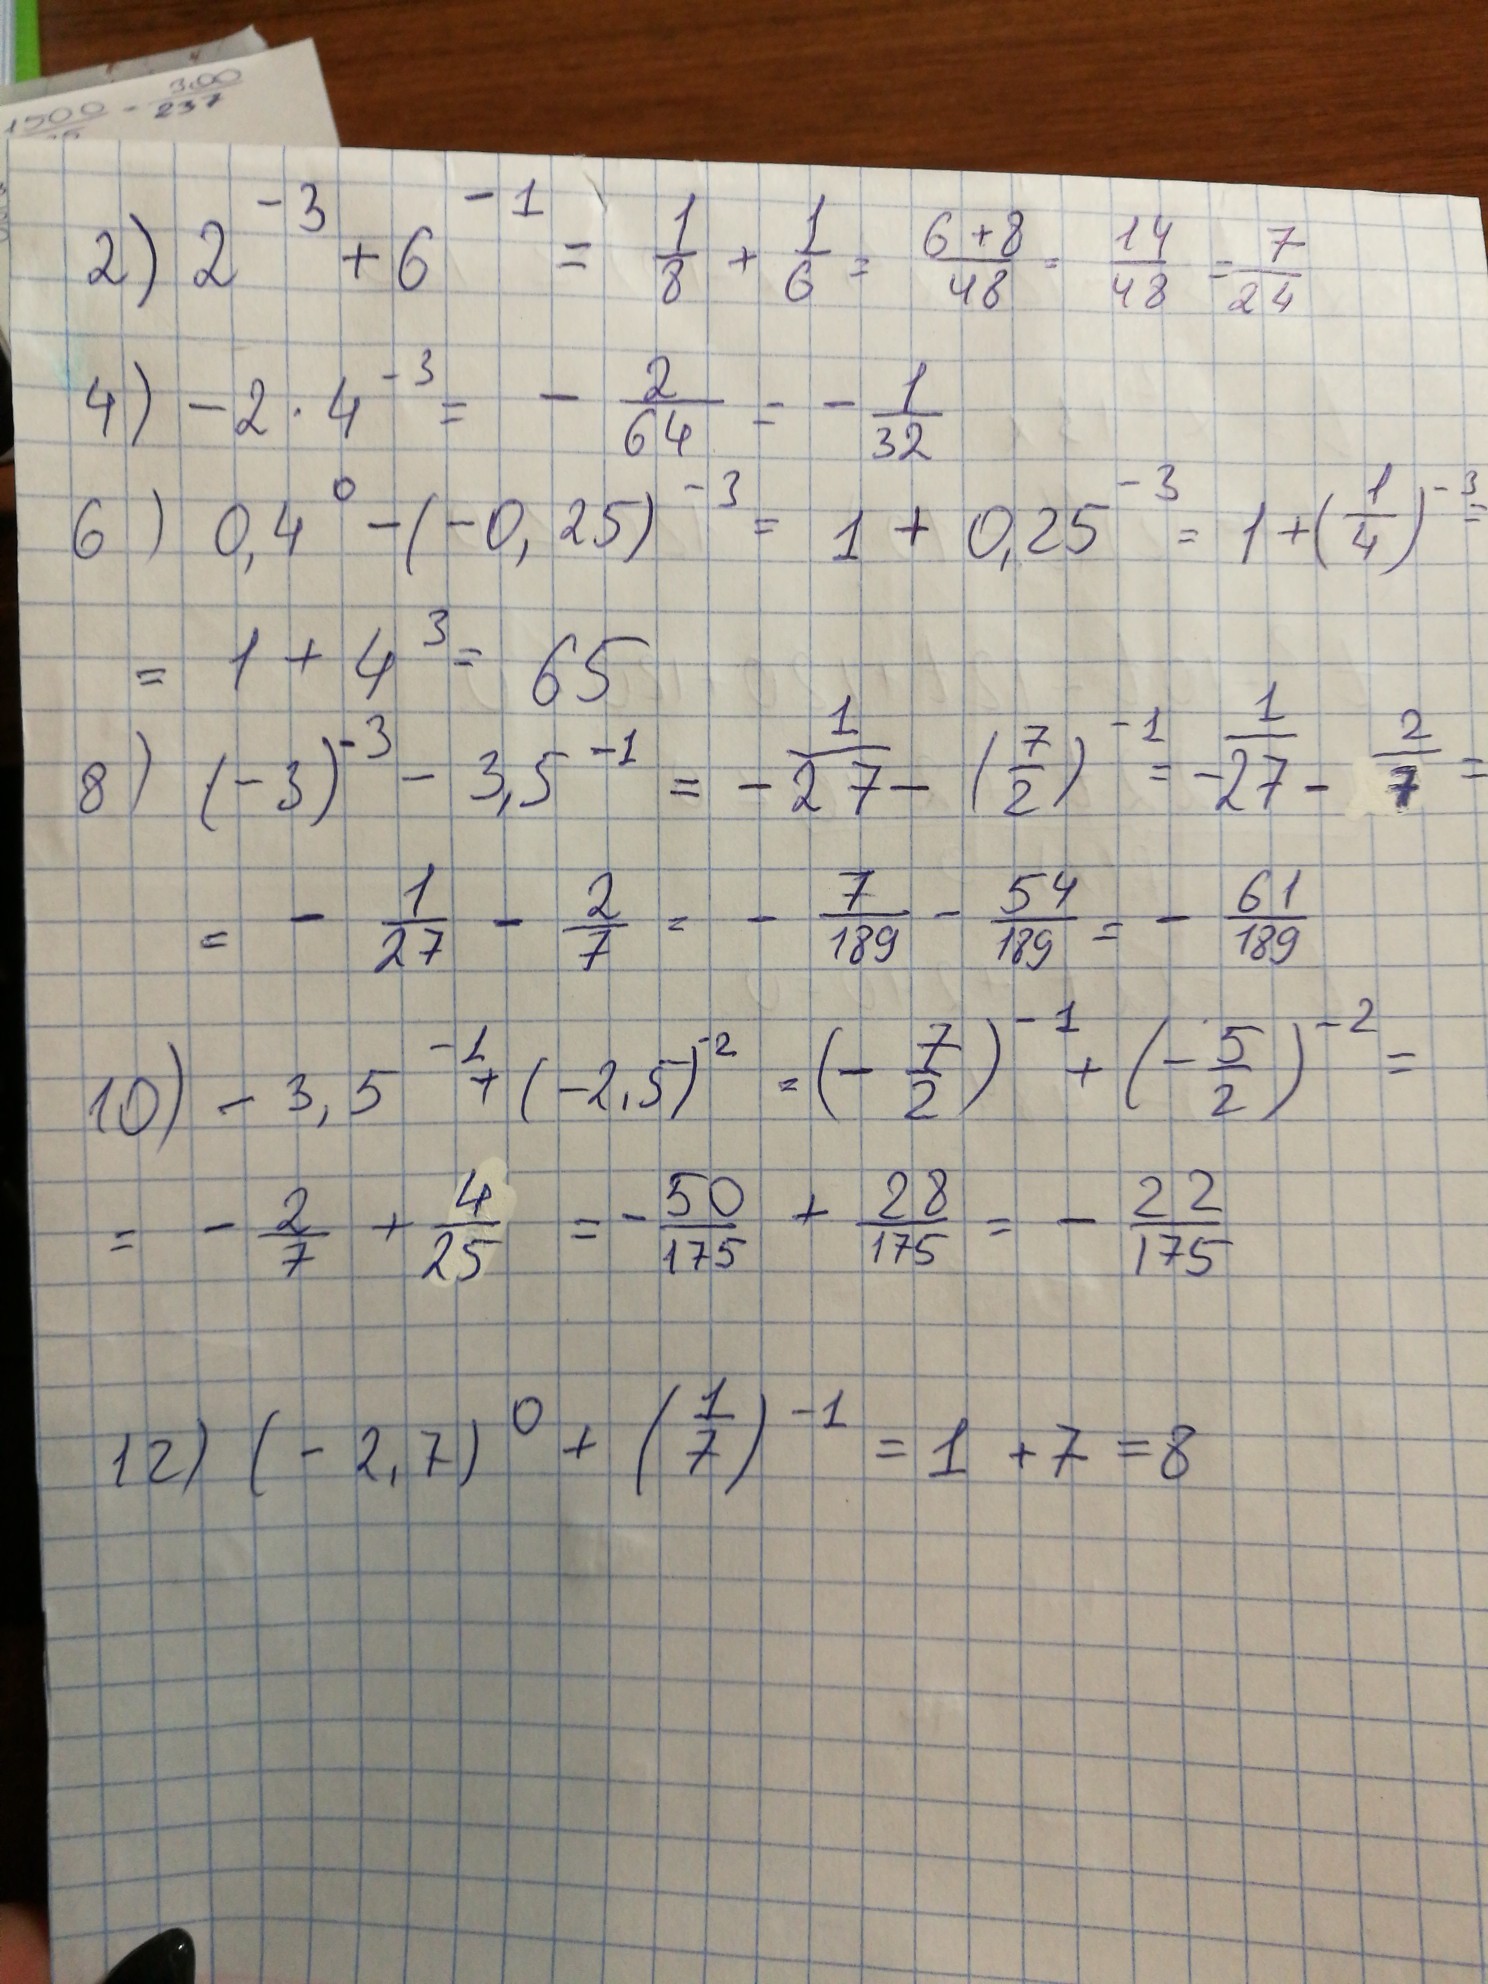 1500 - 300/237
2) 2^-3 + 6^-1 = 1/8 + 1/6 = (6+8)/48 = 14/48 = 7/24
4) -2 · 4^-3 = - 2/64 = - 1/32
6) 0,4^0 - (-0,25)^-3 = 1 + 0,25^-3 = 1 + (1/4)^-3 =
= 1 + 4^3 = 65
8) (-3)^-3 - 3,5^-1 = - 1/27 - (7/2)^-1 = 1/-27 - 2/7 =
= - 1/27 - 2/7 = - 7/189 - 54/189 = - 61/189
10) - 3,5^-1 + (-2,5)^-2 = (- 7/2)^-1 + (- 5/2)^-2 =
= - 2/7 + 4/25 = - 50/175 + 28/175 = - 22/175
12) (-2,7)^0 + (1/7)^-1 = 1 + 7 = 8